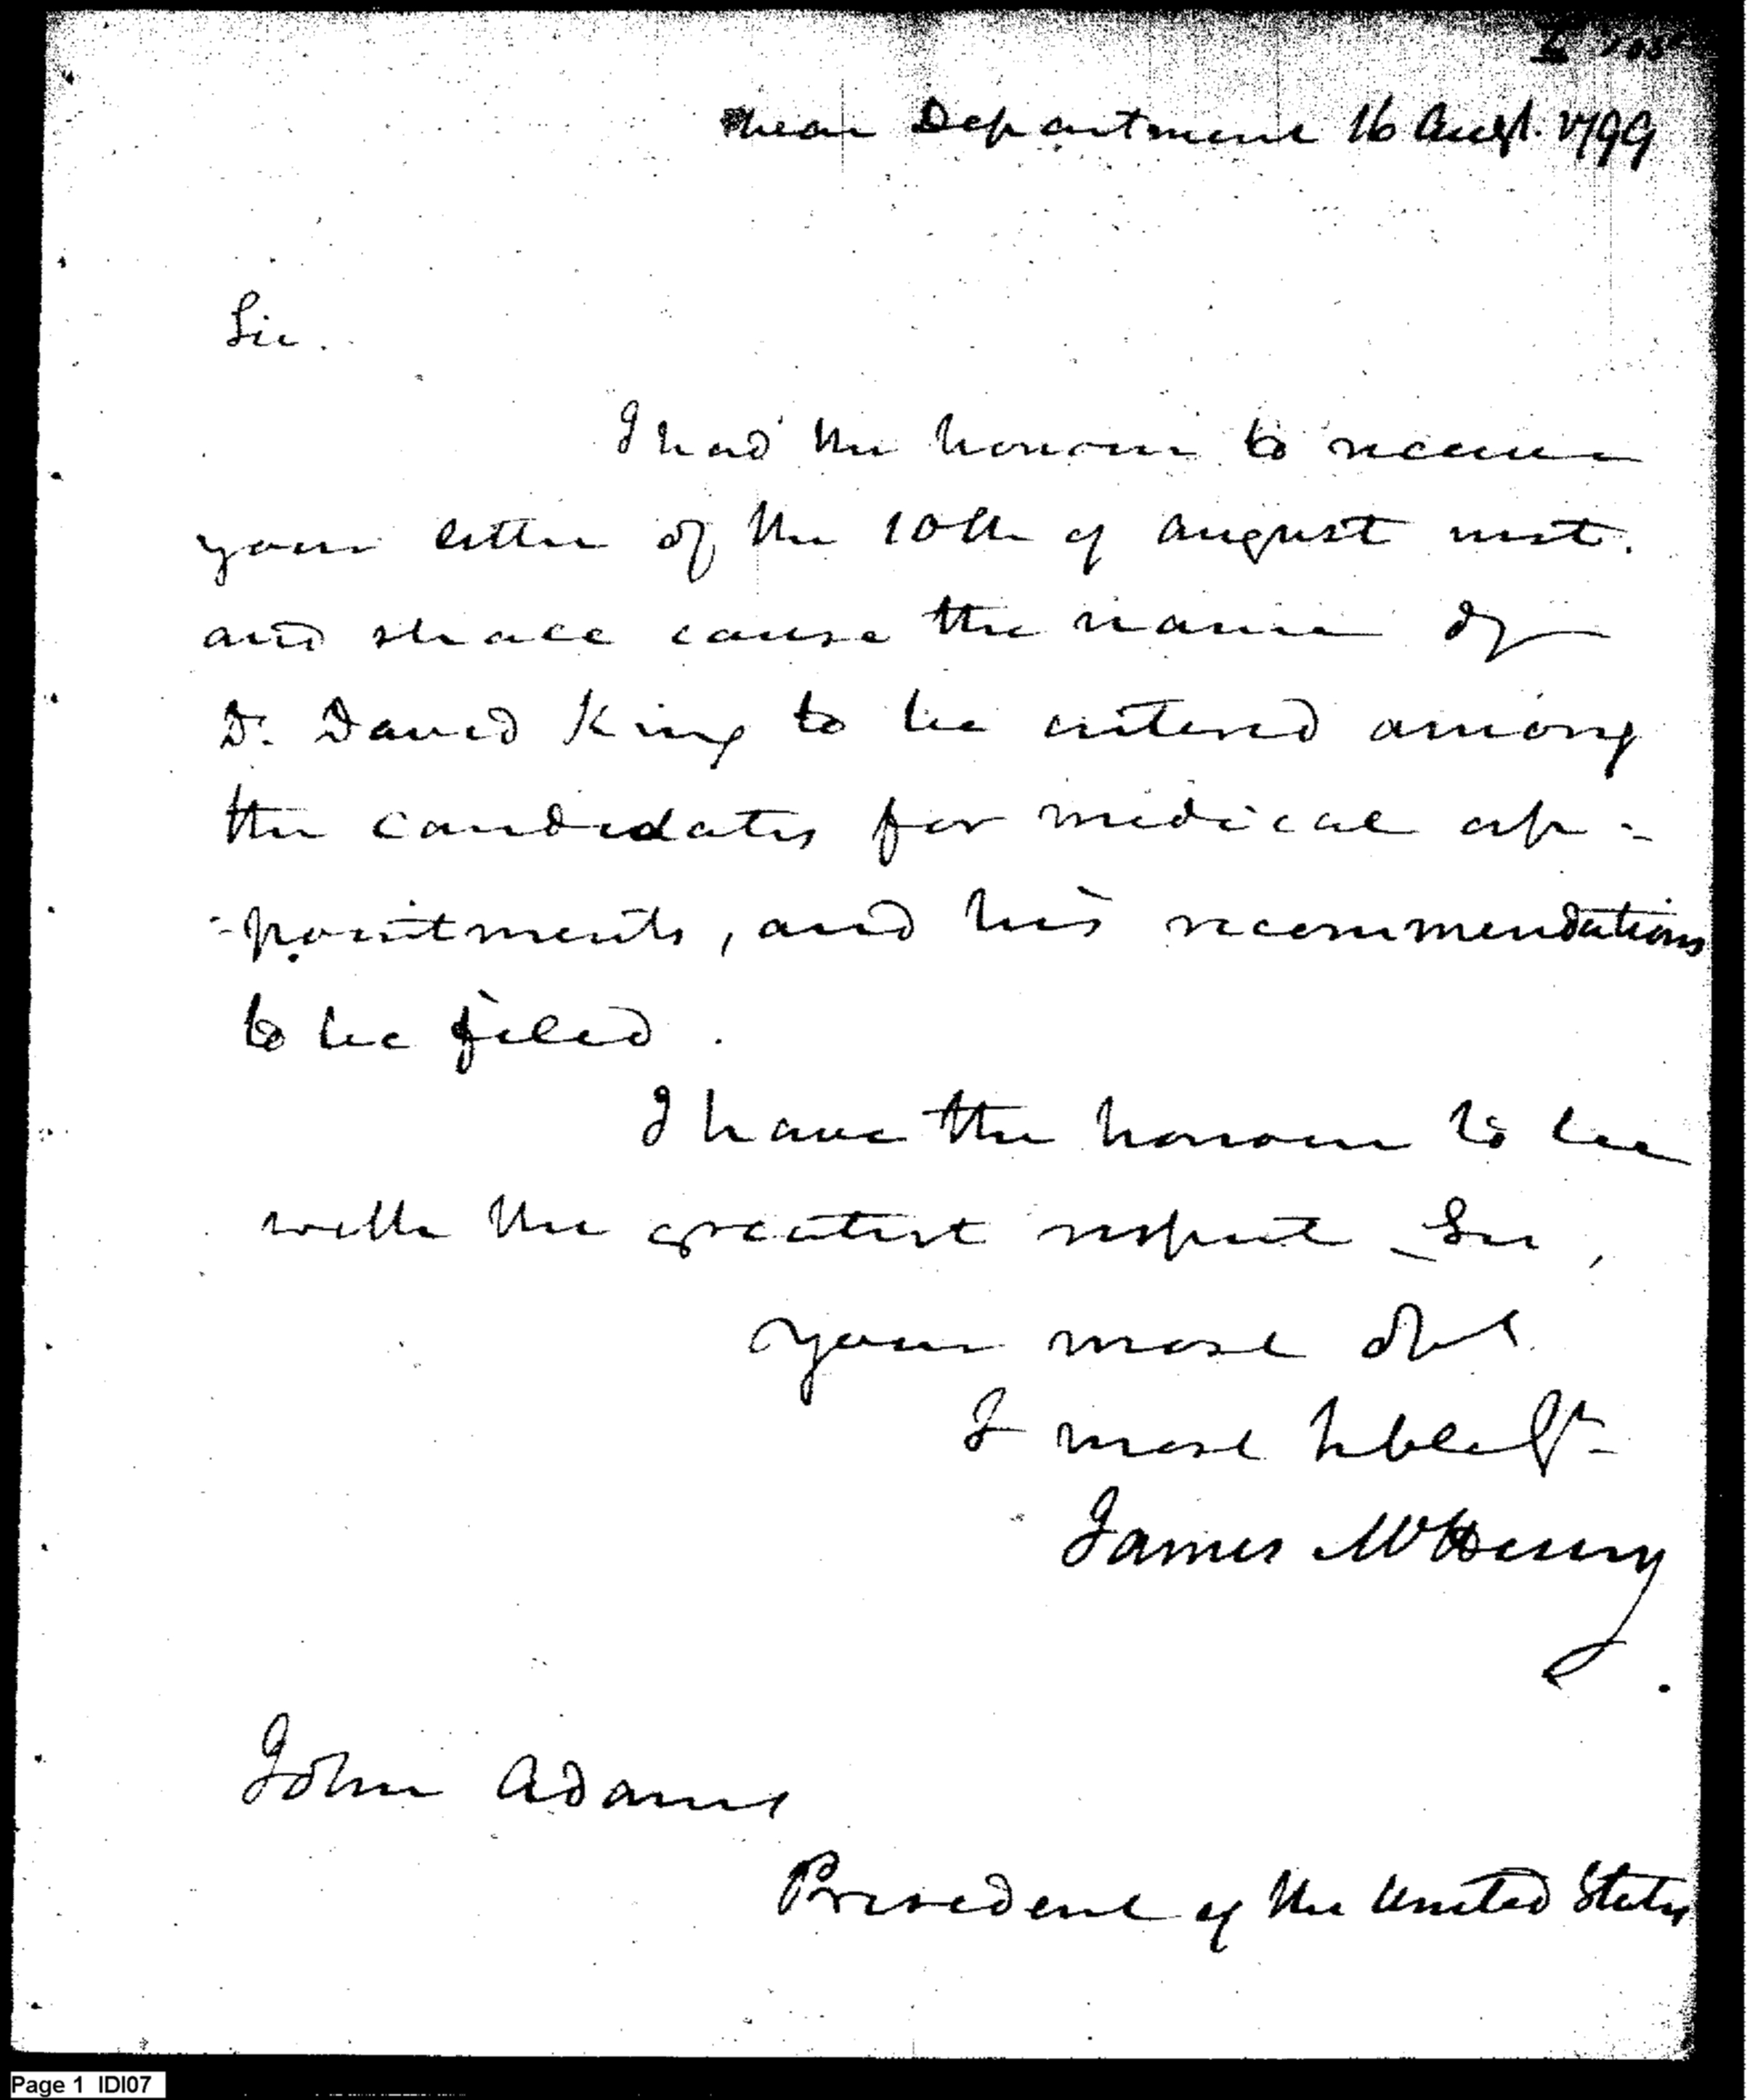 War Department 16 Augt. 1799
Sir.
I had the honour to receive
your letter of the 10th of august inst.
and shall cause the name of
Dr. David King to be entered among
the candidates for medical ap=
=pointments, and his recommendations
to be filed.
I have the honour to be
with the greatest respect Sir,
your most obt
& most hble St
James McHenry
John Adams
President of the United States
Page 1 IDI07